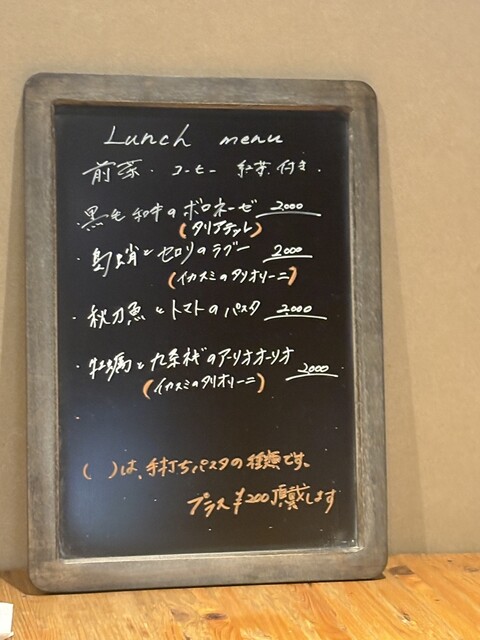 Lunch menu
前菜・コーヒー 紅茶 付き.
黒毛和牛のボロネーゼ 2000
(タリアテッレ)
・真蛸とセロリのラグー 2000
(イカスミのタリオリーニ)
・秋刀魚とトマトのパスタ 2000
・牡蠣と九条ネギのアーリオオーリオ 2000
(イカスミのタリオリーニ)
( )は、手打ちパスタの種類です。
プラス¥200頂戴します